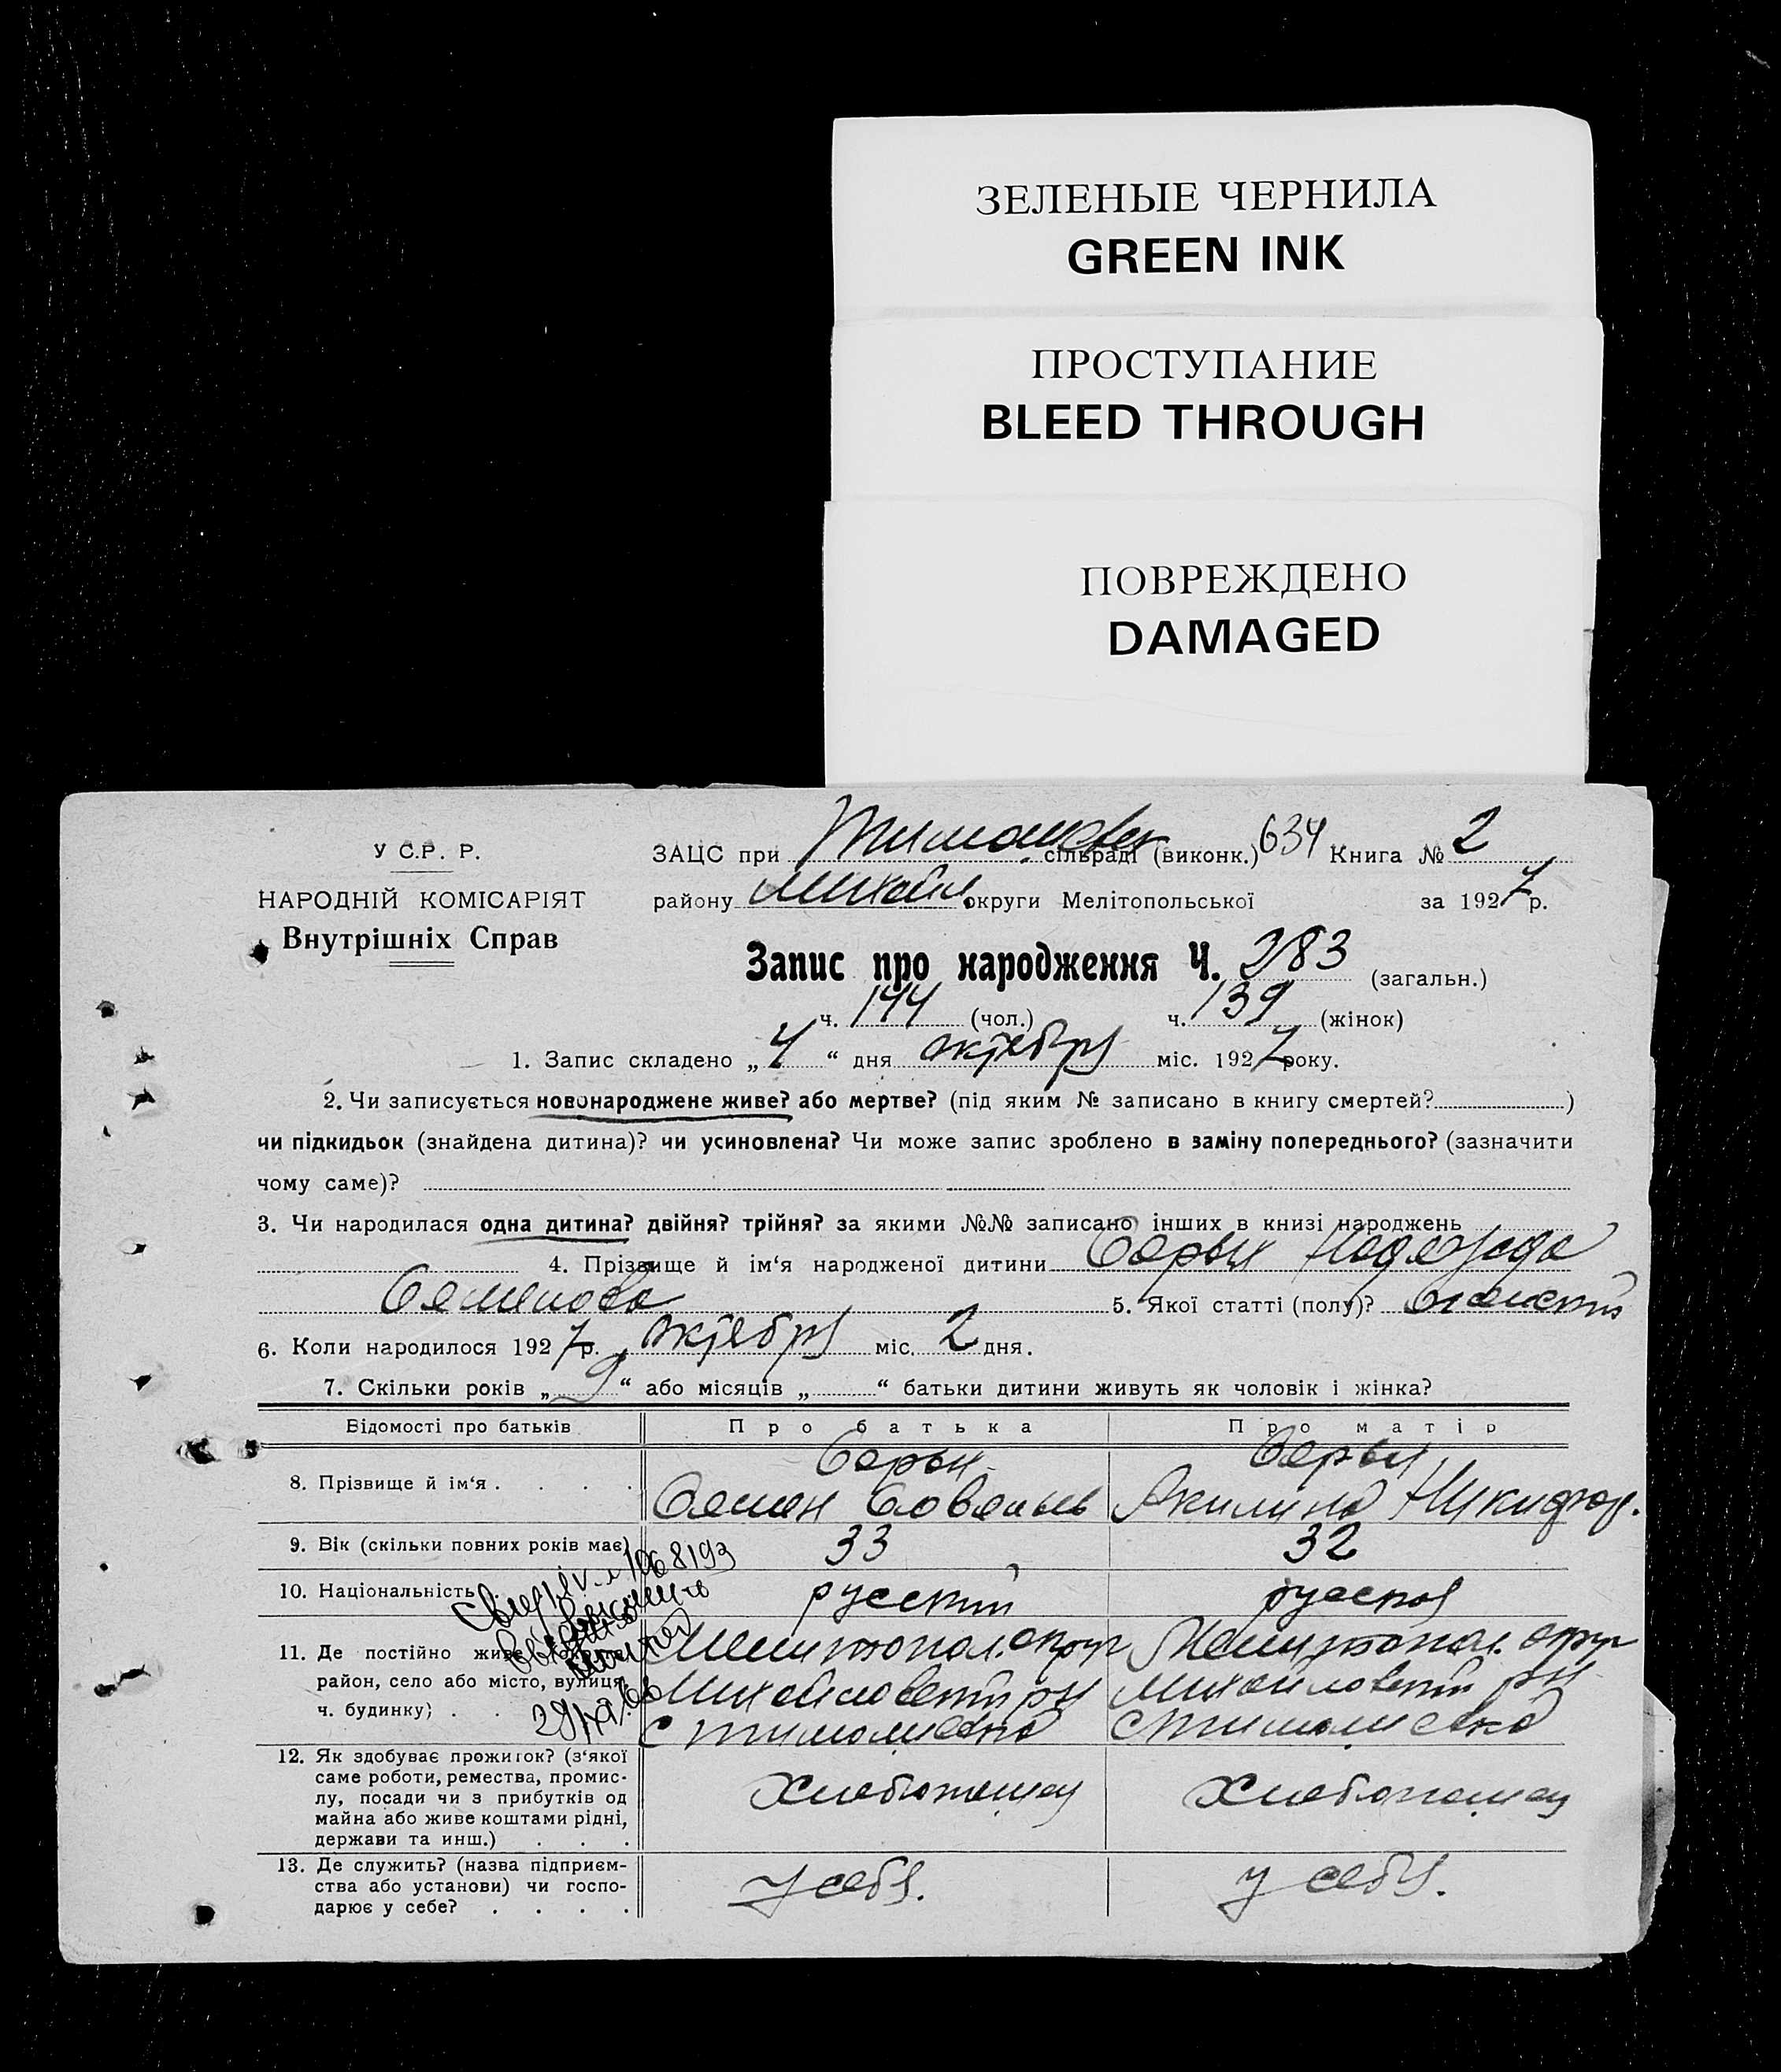 ЗЕЛЕНЫЕ ЧЕРНИЛА
GREEN INK
ПРОСТУПАНИЕ
BLEED THROUGH
ПОВРЕЖДЕНО
DAMAGED
У С.Р. Р.
НАРОДНІЙ КОМІСАРІЯТ
Внутрішніх Справ
ЗАЦС при Тимошевск сільраді (виконк.) 634 Книга № 2
району Михайл. округи Мелітопольської за 1927 р.
Запис про народження Ч. 283 (загальн.)
ч. 144 (чол.) ч. 139 (жінок)
1. Запис складено „4“ дня октября міс. 1927 року.
2. Чи записується новонароджене живе? або мертве? (під яким № записано в книгу смертей? )
чи підкидьок (знайдена дитина)? чи усиновлена? Чи може запис зроблено в заміну попереднього? (зазначити
чому саме)?
3. Чи народилася одна дитина? двійня? трійня? за якими №№ записано інших в книзі народжень
4. Прізвище й ім‘я народженої дитини Надежда
Семенова 5. Якої статті (полу)? женский
6. Коли народилося 1927 р. октября міс. 2 дня.
7. Скільки років „9“ або місяців „ “ батьки дитини живуть як чоловік і жінка?
Відомості про батьків Про батька Про матір
8. Прізвище й ім‘я . . . .
Семен Савельев Акилина Никифор.
9. Вік (скільки повних років має) 33 32
10. Національність русский русская
11. Де постійно живе Мелитопол. округ Мелитопол. округ
район, село або місто, вулиця, Михайловский рн Михайловский рн
ч. будинку) . с Тимошевка с Тимошевка
1068193
12. Як здобуває прожиток? (з‘якої
саме роботи, ремества, промис-
лу, посади чи з прибутків од
майна або живе коштами рідні,
держави та инш.) . . .
Хлебопашец Хлебопашец
13. Де служить? (назва підприєм-
ства або установи) чи госпо-
дарює у себе? . . . .
у себя. у себя.